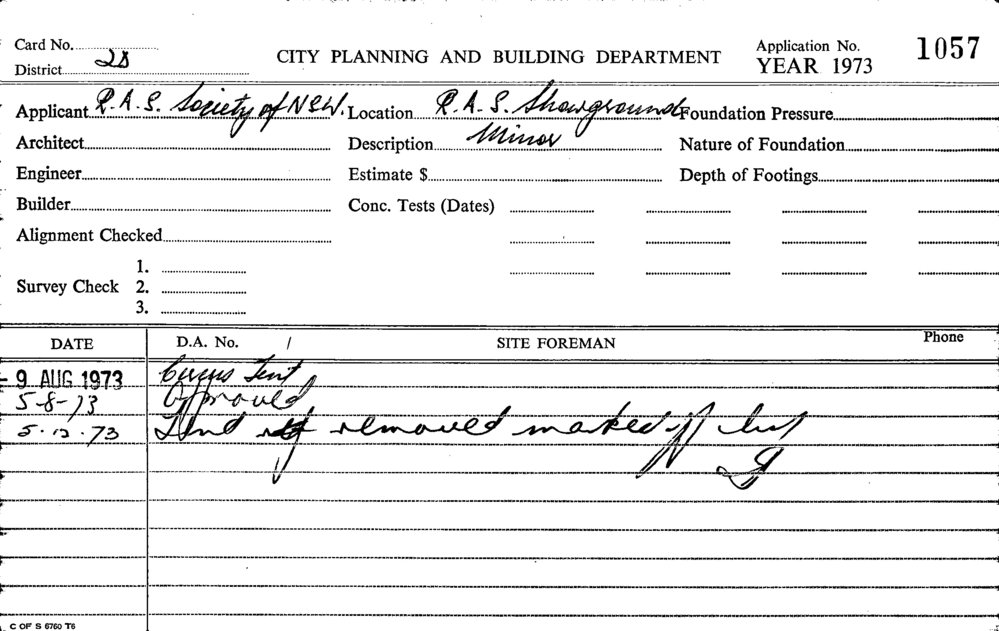 Card No.
District 2D
CITY PLANNING AND BUILDING DEPARTMENT
Application No. 1057
YEAR 1973
Applicant R.A.S. Society of NSW. Location R.A.S. Showground Foundation Pressure
Architect Description Minor Nature of Foundation
Engineer Estimate $ Depth of Footings
Builder Conc. Tests (Dates)
Alignment Checked
1.
Survey Check 2.
3.
DATE D.A. No. / SITE FOREMAN Phone
- 9 AUG 1973 Circus Tent
5-8-73 Approved
5.12.73 Tent removed marked off
C OF S 6760 T6